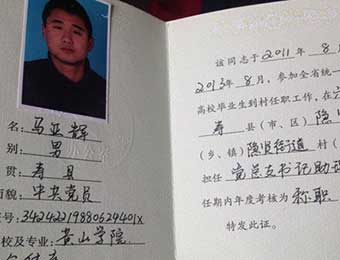 名：马亚辉
别：男
贯：寿县
面貌：中共党员
号：34242219880624401X
校及专业：黄山学院
该同志于2011年8月
2013年8月，参加全省统一
高校毕业生到村任职工作，在
寿县（市、区）隐
（乡、镇）隐贤街道村（
担任党总支书记助理
任期内年度考核为称职
特发此证。